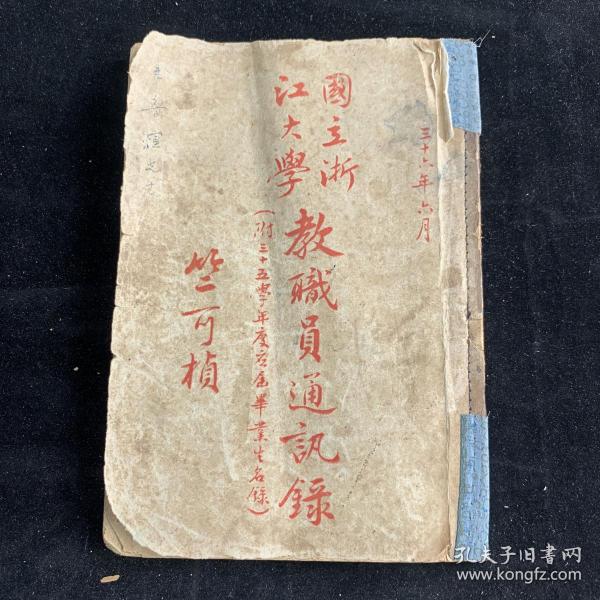 三十六年六月
國立浙
江大學
教職員通訊錄
(附三十五學年度应届畢業生名錄)
竺可楨
孔夫子旧书网
www.kongfz.com